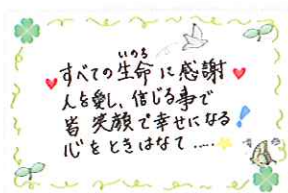 いのち
すべての生命に感謝
人を愛し、信じる事で
皆 笑顔で幸せになる!
心をときはなて.....